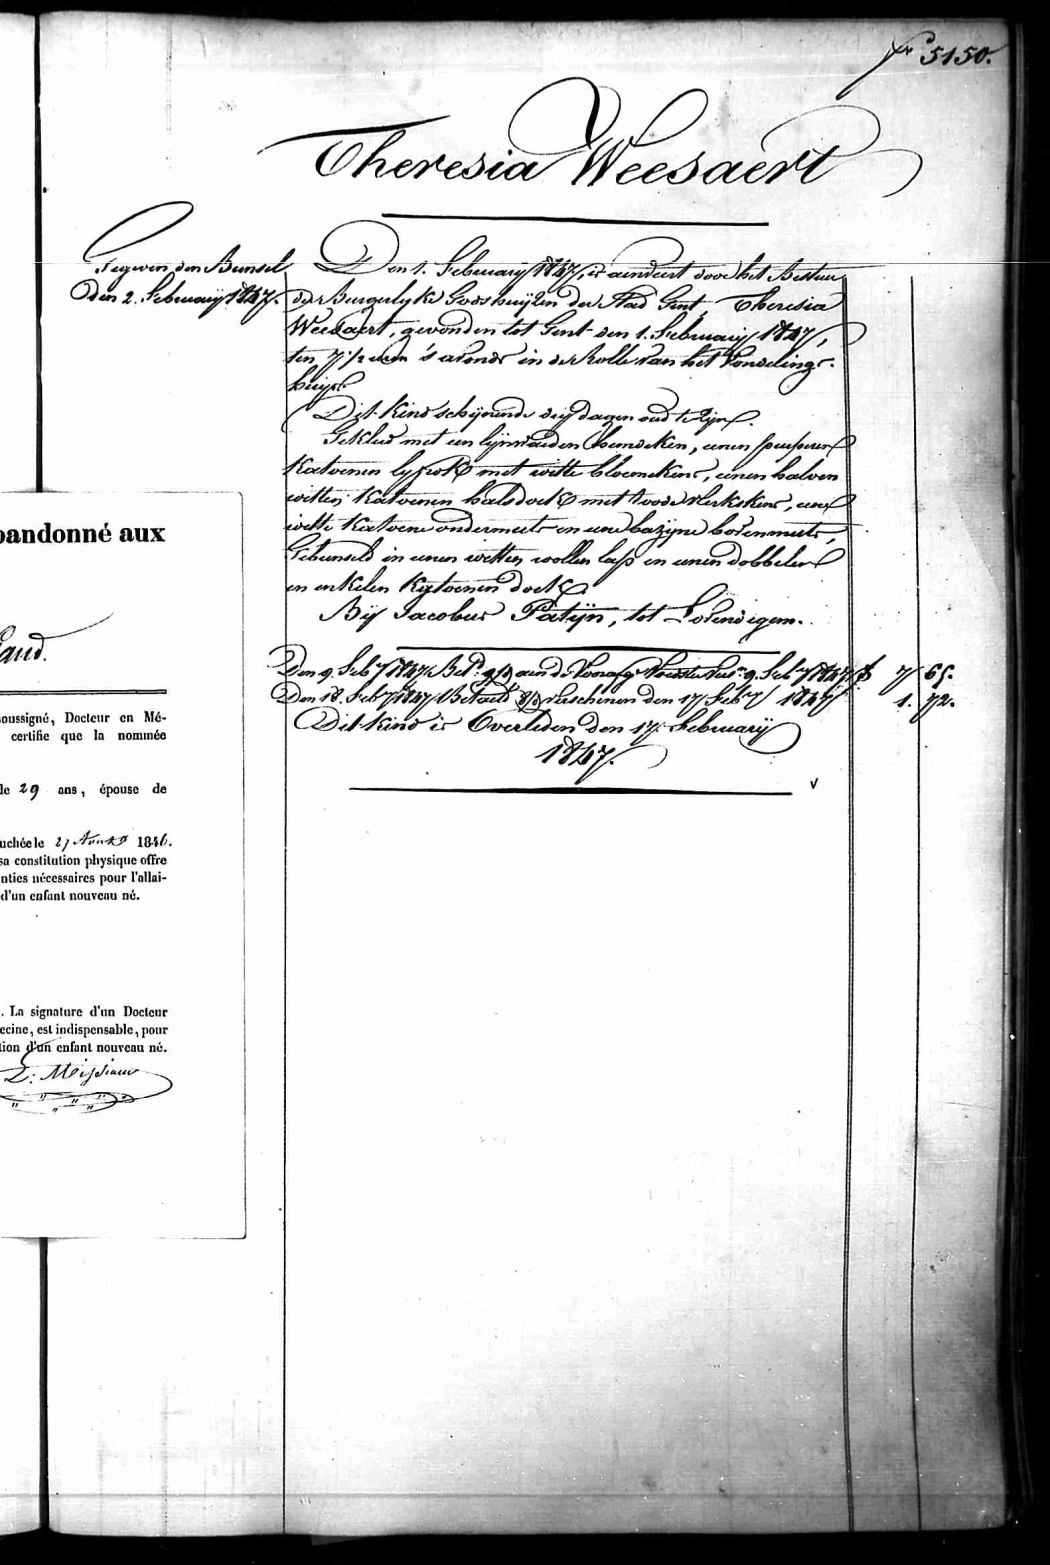 f° 5150.
Theresia Weesaert
Gegeven den Bunsel
den 2. February 1847.
Den 1. February 1847, is aenveert door het Bestuer
der Burgerlyke Godshuyzen der Stad Gent, Theresia
Weesaert, gevonden tot Gent den 1. February 1847,
ten 7 1/2 uren 's avonds in de Rolle van het Vondelings-
huys.
Dit kind schynende dry dagen oud te zyn.
Gekleed met een lynwaeden hemdeken, eenen purperen
katoenen lyfrok met witte bloemekens, eenen halven
witten katoenen halsdoek met roode werkskens, eene
witte katoene ondermuts en eene bazyne bovenmuts,
Gebunseld in eenen witten wollen lap en eenen dobbelen
en enkelen katoenen doek.
By Jacobus Patyn, tot Lovendegem.
Den 9. Feb. 1847 Bet. aen de 9. Feb. 1847 f 7 65.
Den 18. Feb. 1847 Betaeld verschenen den 17 Feb. 1847 1. 72.
Dit kind is Overleden den 17. February
1847.
v
bandonné aux
Gand.
soussigné, Docteur en Mé-
certifie que la nommée
de 29 ans, épouse de
uchée le 27 1846.
sa constitution physique offre
nties nécessaires pour l'allai-
d'un enfant nouveau né.
. La signature d'un Docteur
ecine, est indispensable, pour
tion d'un enfant nouveau né.